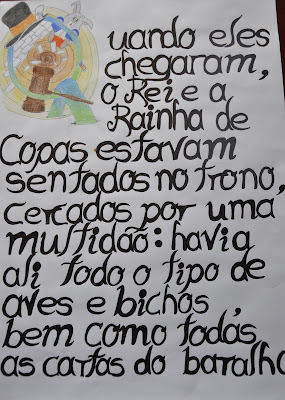 Quando eles
chegaram,
o Rei e a
Rainha de
Copas estavam
sentados no trono,
cercados por uma
multidão: havia
ali todo o tipo de
aves e bichos,
bem como todas
as cartas do baralho